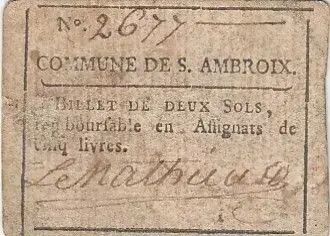 N.° 2677
COMMUNE DE S. AMBROIX.
BILLET DE DEUX SOLS,
remboursable en Assignats de
cinq livres.